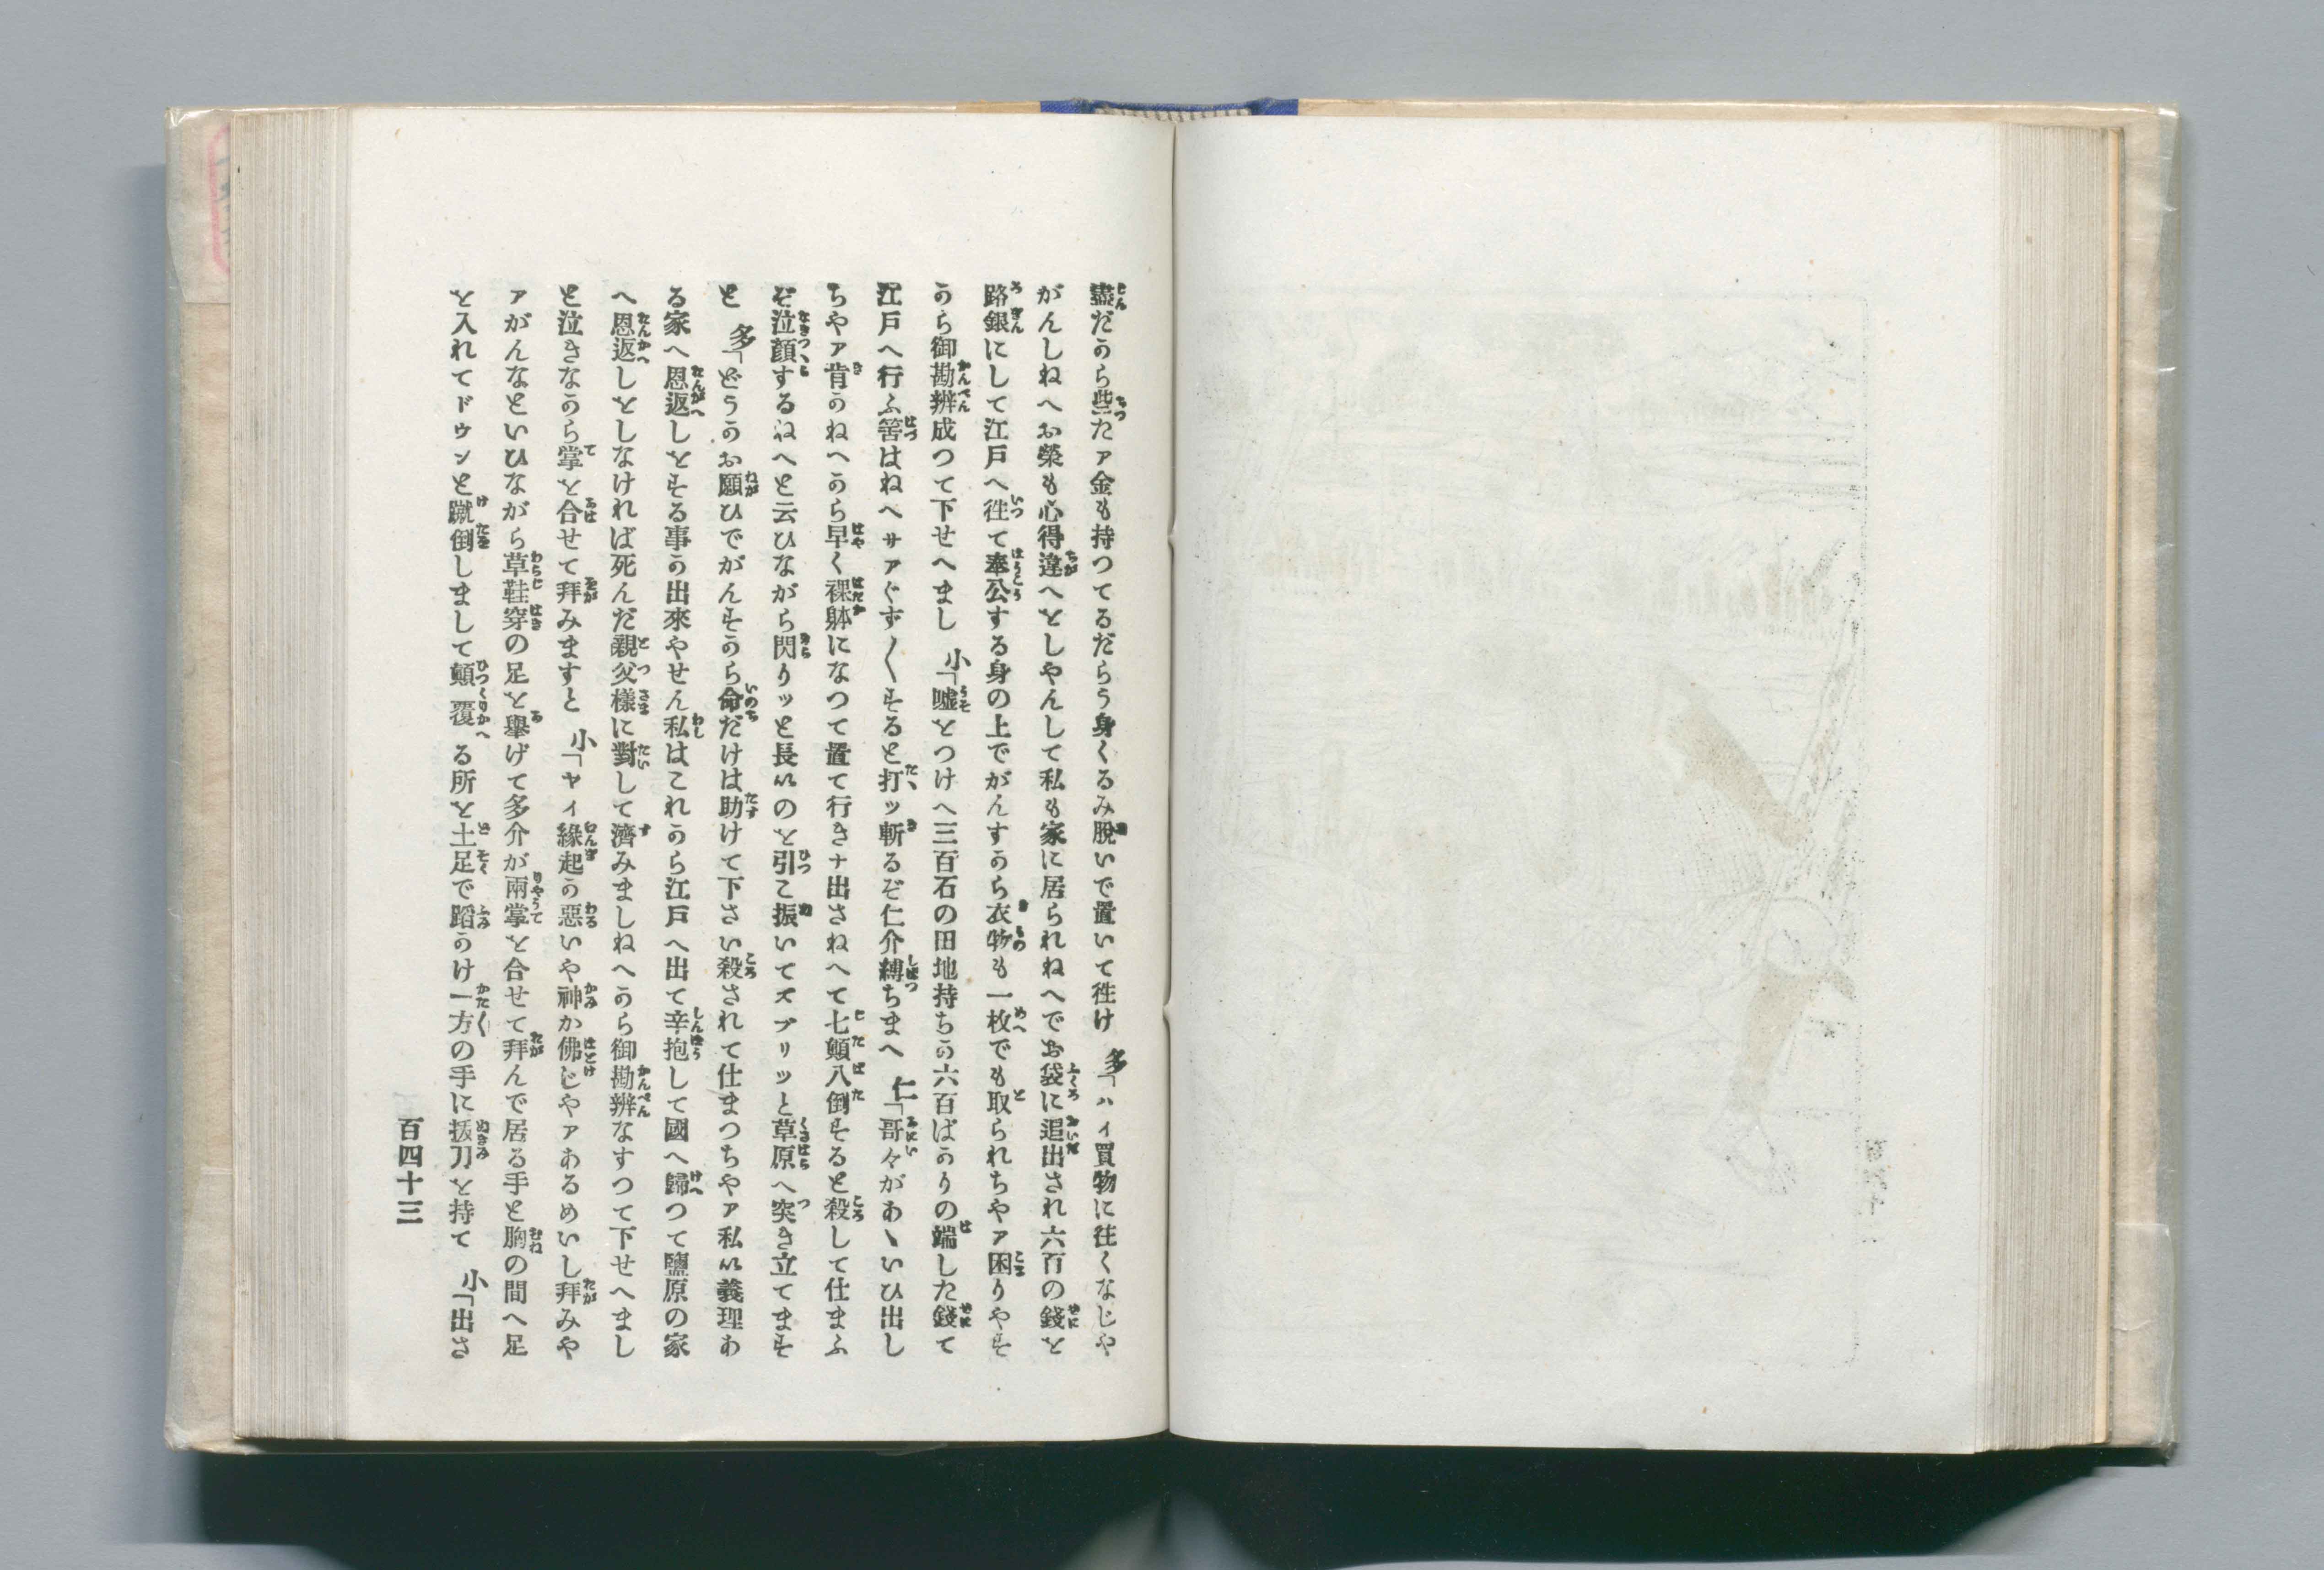 盡だから些たァ金も持つてるだらう身ぐるみ脱いで置いて徃け　多「ハイ買物に往くなじや
がんしねへお榮も心得違へをしやんして私も家に居られねへでお袋に追出され六百の錢を
路銀にして江戸へ徃て奉公する身の上でがんすから衣物も一枚でも取られちやァ困りやす
から御勘辨成つて下せへまし　小「嘘をつけへ三百石の田地持ちが六百ばかりの端した錢で
江戸へ行ふ筈はねへサァぐず〱すると打ッ斬るぞ仁介縛ちまへ　仁「哥々がおゝいひ出し
ちやァ肯かねへから早く裸躰になつて置て行きナ出さねへて七顛八倒すると殺して仕まふ
ぞ泣顔するねへと云ひながら閃りッと長いのを引こ振いてズブリッと草原へ突き立てます
と　多「どうかお願ひでがんすから命だけは助けて下さい殺されて仕まつちやァ私い義理あ
る家へ恩返しをする事が出來やせん私はこれから江戸へ出て辛抱して國へ歸つて鹽原の家
へ恩返しをしなければ死んだ親父樣に對して濟みましねへから御勘辨なすつて下せへまし
と泣きながら掌を合せて拜みますと　小「ヤイ緣起が惡いや神か佛じやァあるめいし拜みや
ァがんなといひながら草鞋穿の足を擧げて多介が兩掌を合せて拜んで居る手と胸の間へ足
を入れてドウンと蹴倒しまして顛覆る所を土足で蹈かけ一方の手に拔刀を持て　小「出さ
百四十三